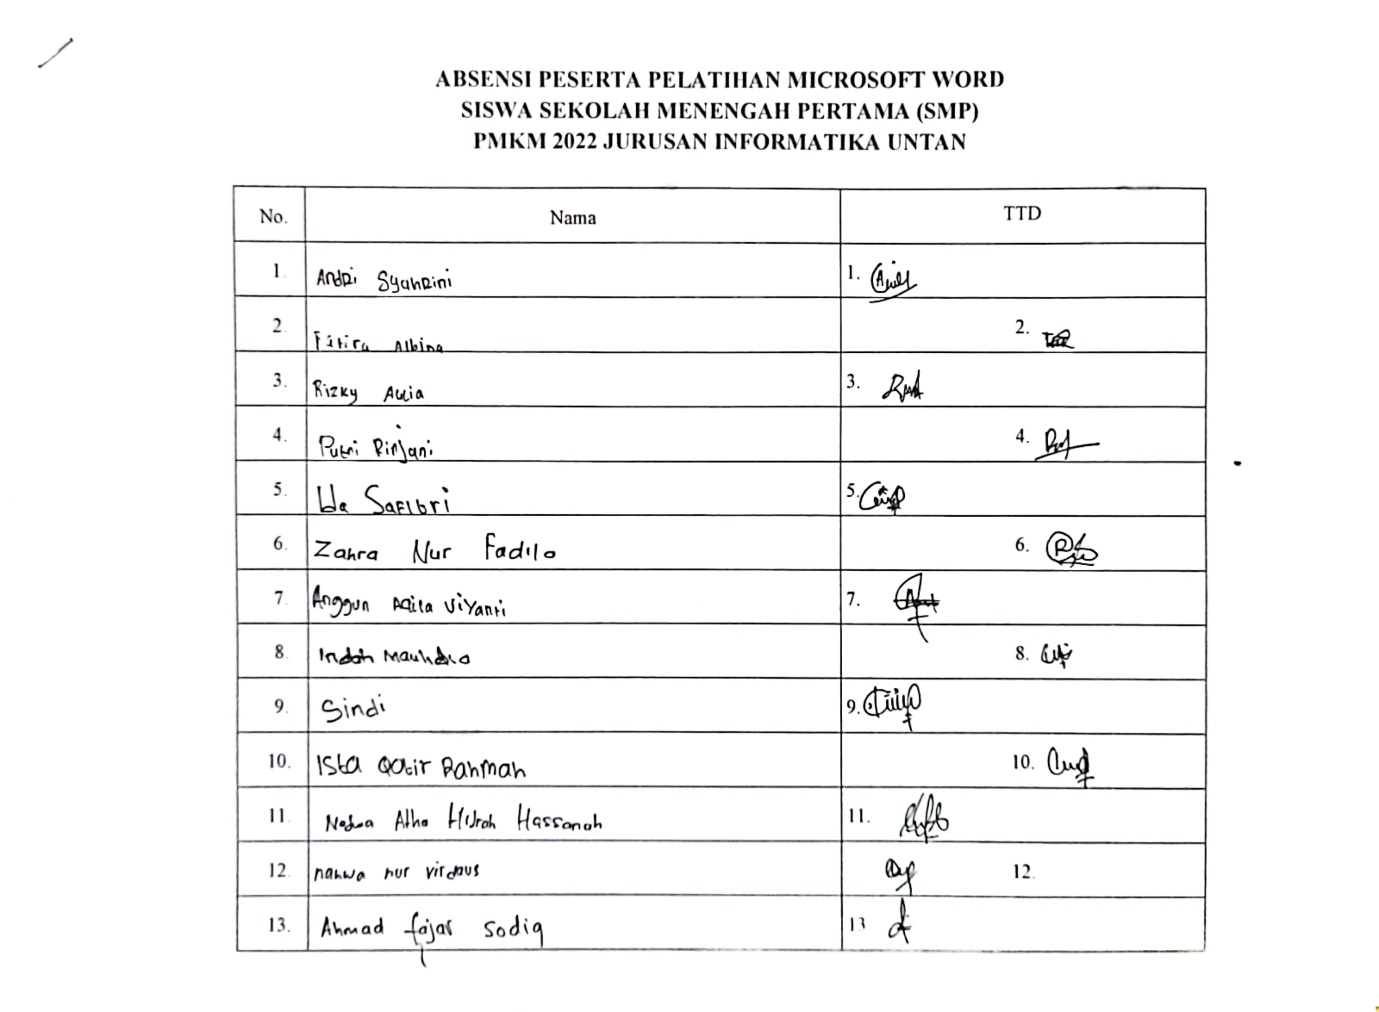 ABSENSI PESERTA PELATIHAN MICROSOFT WORD
SISWA SEKOLAH MENENGAH PERTAMA (SMP)
PMKM 2022 JURUSAN INFORMATIKA UNTAN
No. Nama TTD
1. Andri Syahrini 1.
2. Fitira Albina 2.
3. Rizky Aulia 3.
4. Putri Rinjani 4.
5. Ida Safitri 5.
6. Zahra Nur Fadila 6.
7. Anggun Aqila Viyanti 7.
8. Indah 8.
9. Sindi 9.
10. Ista Qotir Rahmah 10.
11. Atha Hassanah 11.
12. nahwa nur virdaus 12.
13. Ahmad fajar sodiq 13